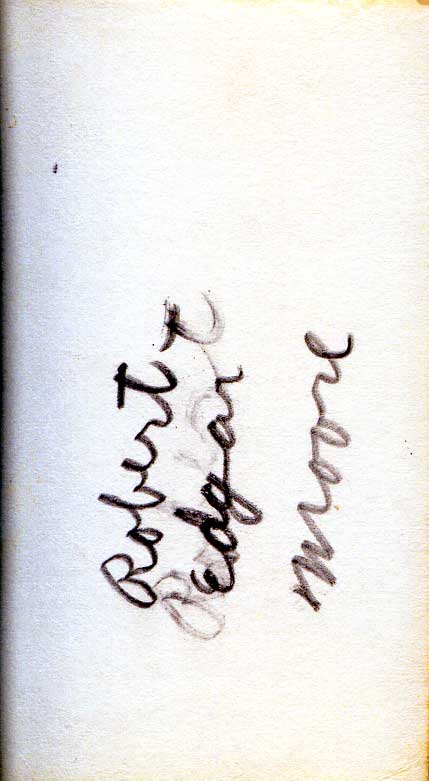 Robert
Edgar
Moore